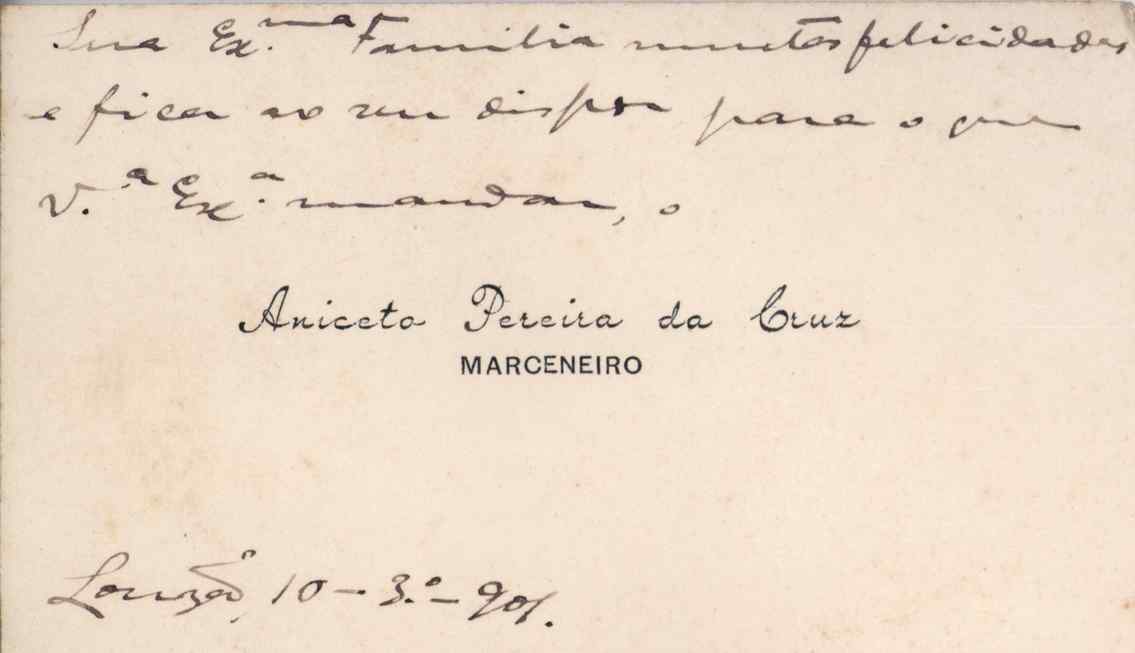 Sua Ex.ma Familia muitas felicidades
e fica ao seu dispor para o que
V.ª Ex.ª mandar, o
Aniceto Pereira da Cruz
MARCENEIRO
Louzã, 10-3.º-901.